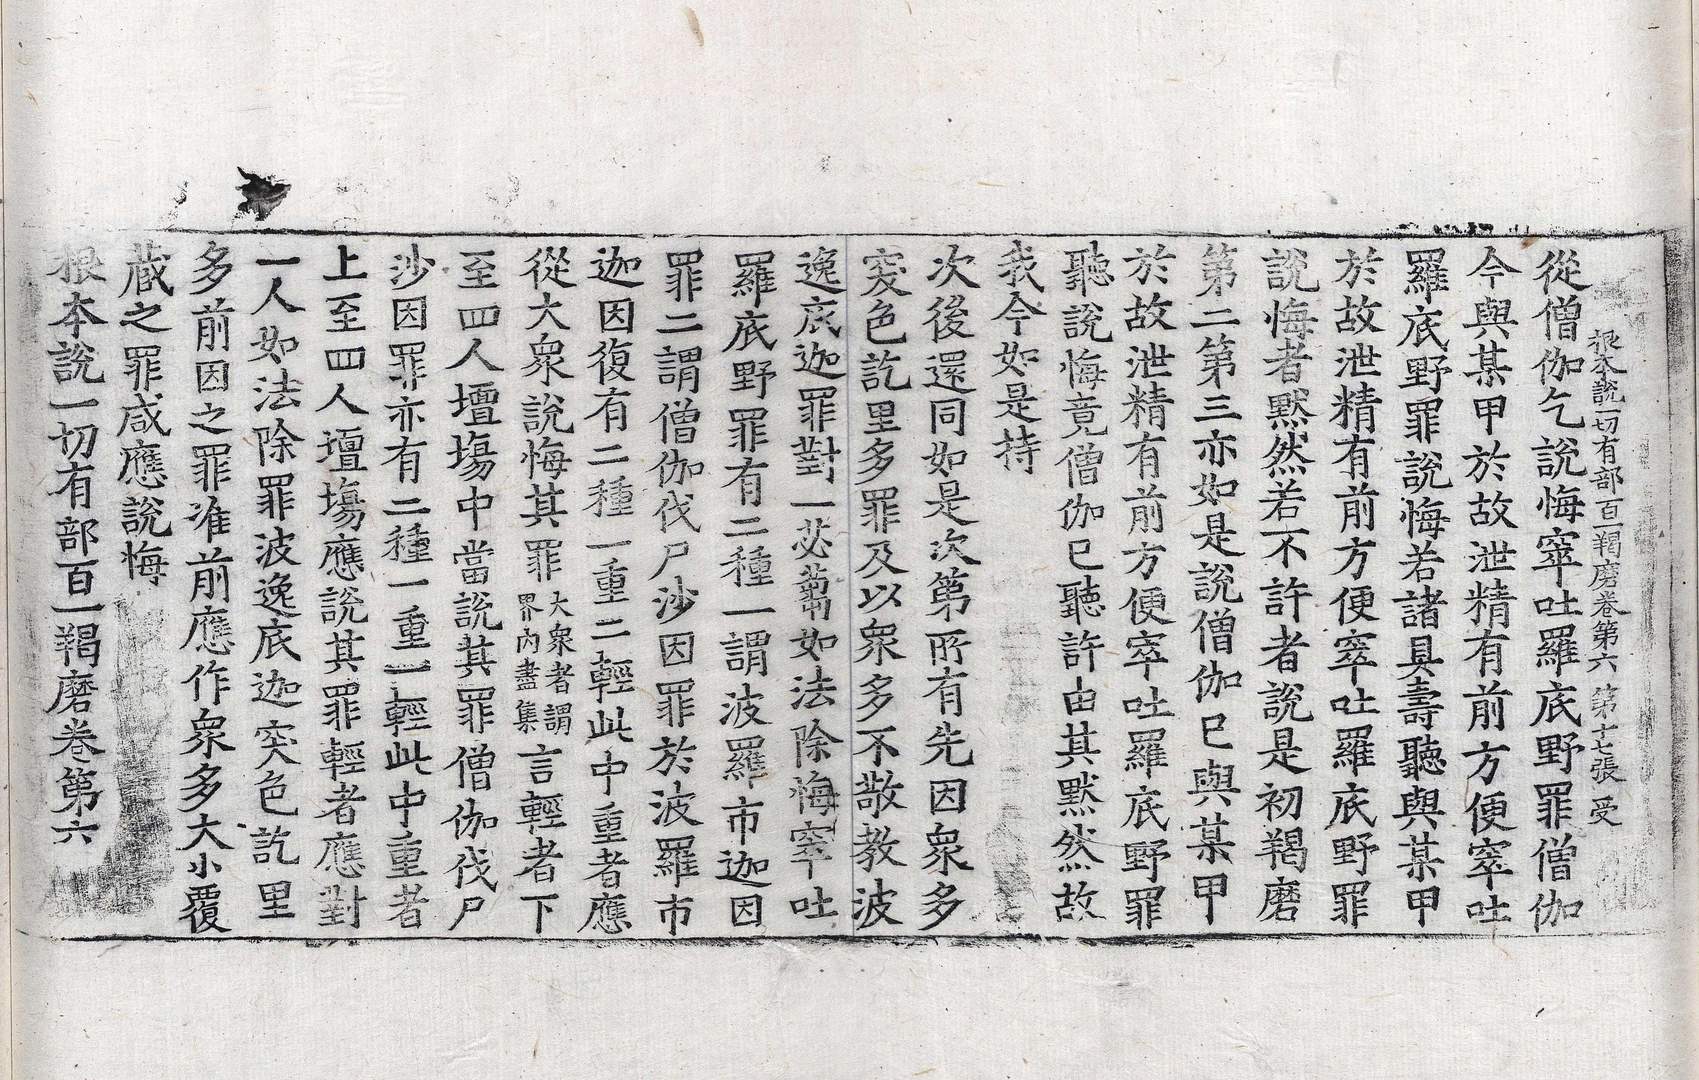 根本說一切有部百一羯磨卷第六 第十七張 受
從僧伽乞說悔窣吐羅底野罪僧伽
今與某甲於故泄精有前方便窣吐
羅底野罪說悔若諸具壽聽與某甲
於故泄精有前方便窣吐羅底野罪
說悔者默然若不許者說是初羯磨
第二第三亦如是說僧伽已與某甲
於故泄精有前方便窣吐羅底野罪
聽說悔竟僧伽已聽許由其默然故
我今如是持
次後還同如是次第所有先因眾多
突色訖里多罪及以眾多不敬教波
逸底迦罪對一苾蒭如法除悔窣吐
羅底野罪有二種一謂波羅市迦因
罪二謂僧伽伐尸沙因罪於波羅市
迦因復有二種一重二輕此中重者應
從大眾說悔其罪大眾者謂界內盡集言輕者下
至四人壇場中當說其罪僧伽伐尸
沙因罪亦有二種一重二輕此中重者
上至四人壇場應說其罪輕者應對
一人如法除罪波逸底迦突色訖里
多前因之罪准前應作眾多大小覆
蔵之罪咸應說悔
根本說一切有部百一羯磨卷第六